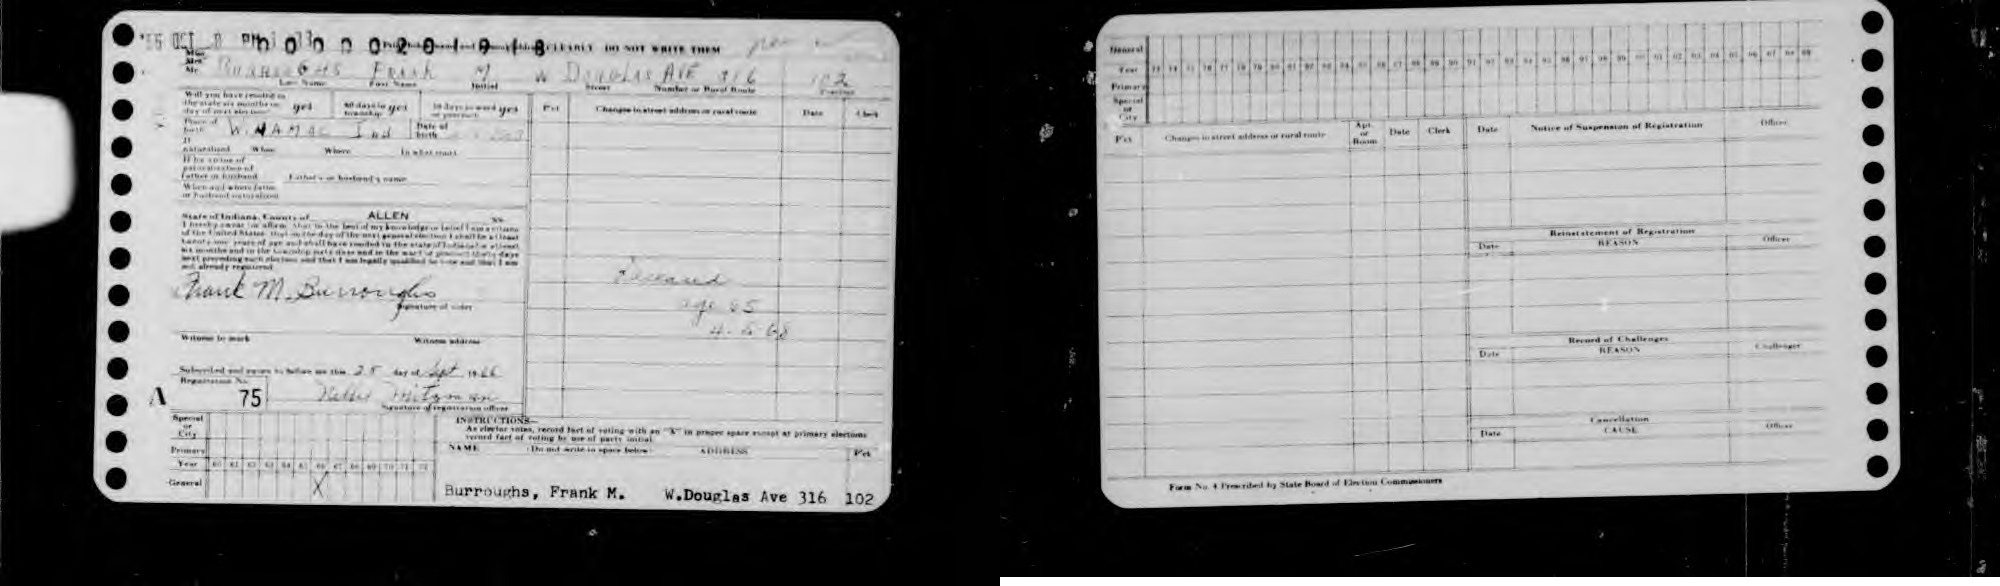 OCT PM CLEARLY DO NOT WRITE THEM
Miss
Mrs
Mr. Burroughs Frank M W Douglas AVE 316 102
Last Name First Name Initial Street Number or Rural Route Precinct
Will you have resided in
the state six months on
day of next election yes 60 days in township yes 30 days in ward or precinct yes Pct Changes in street address or rural route Date Clerk
Place of
birth WINAMAC Ind Date of
birth
If
naturalized When Where In what court
If by virtue of
naturalization of
father or husband Father's or husband's name
When and where father
or husband naturalized
State of Indiana, County of ALLEN ss.
I hereby swear (or affirm) that to the best of my knowledge or belief I am a citizen
of the United States, that on the day of the next general election I shall be at least
twenty-one years of age and shall have resided in the state of Indiana at least
six months and in the township sixty days and in the ward or precinct thirty days
next preceding such election and that I am legally qualified to vote and that I am
not already registered
Deceased
age 65
4-5-68
Frank M. Burroughs
Signature of voter
Witness to mark Witness address
Subscribed and sworn to before me this 25 day of Sept 1966
Registration No.
A 75
Signature of registration officer
Special
or
City
Primary
Year 60 61 62 63 64 65 66 67 68 69 70 71 72
General X
INSTRUCTIONS—
As elector votes, record fact of voting with an "X" in proper space except at primary elections
record fact of voting by use of party initial
NAME (Do not write in space below) ADDRESS Pct
Burroughs, Frank M. W.Douglas Ave 316 102
General
Year
Primary
Special
or
City
Pct Changes in street address or rural route Apt. or Room Date Clerk Date Notice of Suspension of Registration Officer
Reinstatement of Registration
Date REASON Officer
Record of Challenges
Date REASON Challenger
Cancellation
Date CAUSE Officer
Form No. 4 Prescribed by State Board of Election Commissioners